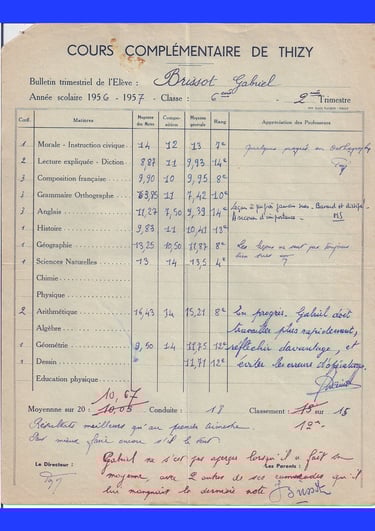 COURS COMPLÉMENTAIRE DE THIZY
Bulletin trimestriel de l'Elève : Brissot Gabriel
Année scolaire 1956 - 1957 - Classe : 6ème 2me Trimestre
Coef. Matières Moyenne des Notes Composition Moyenne générale Rang Appréciation des Professeurs
1 Morale - Instruction civique 14 12 13 7e quelques progrès en orthographe
2 Lecture expliquée - Diction 8,87 11 9,93 14e
3 Composition française 9,90 10 9,95 8e
3 Grammaire Orthographe 3,85 11 7,42 10e
3 Anglais 11,27 7,50 9,39 14e Bavard et
1 Histoire 9,83 11 10,41 13e
1 Géographie 13,25 10,50 11,87 8e Les leçons ne sont pas toujours bien sues
1 Sciences Naturelles 13 14 13,5 4e
Chimie
Physique
2 Arithmétique 16,43 14 15,21 8e En progrès. Gabriel doit
Algèbre travailler plus rapidement,
1 Géométrie 9,50 14 11,75 12e réfléchir davantage, et
1 Dessin 11,71 12e éviter les erreurs d'opérations.
Education physique
10,67
Moyenne sur 20 : 10,05 Conduite : 18 Classement : 13e sur 15
12e
Résultats meilleurs qu'au premier trimestre
Peut mieux faire encore s'il le veut
Gabriel ne s'est pas aperçu lorsqu'il a fait son
Le Directeur : Les Parents :
moyenne, avec 2 autres de ses camarades qu'il
lui manquait la dernière note Brissot